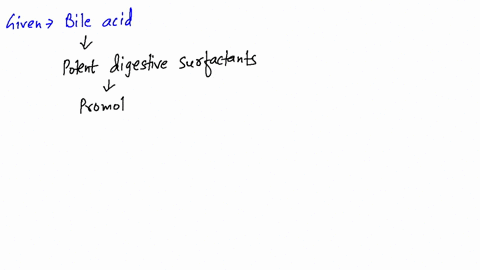 Given → Bile acid
↓
Potent digestive surfactants
↓
Promot